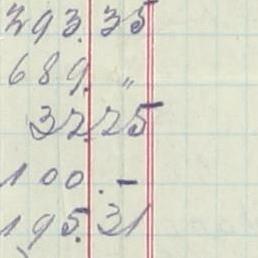 293.35
689. "
37.25
100.-
195.31